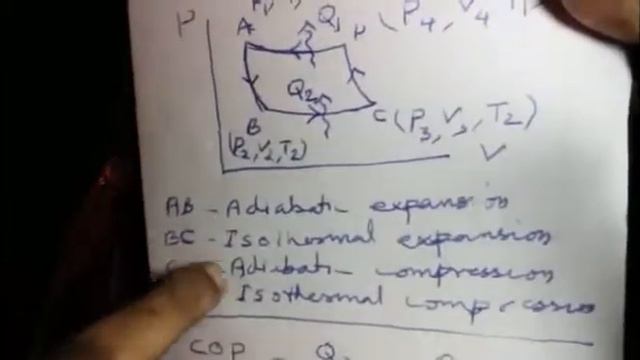 P
A
Q1
D
(P4, V4
Q2
B
(P2, V2, T2)
C(P3, V3, T2)
V
AB - Adiabati expansio
BC - Isothermal expansion
- Adiabati compression
Isothermal compression
COP Q